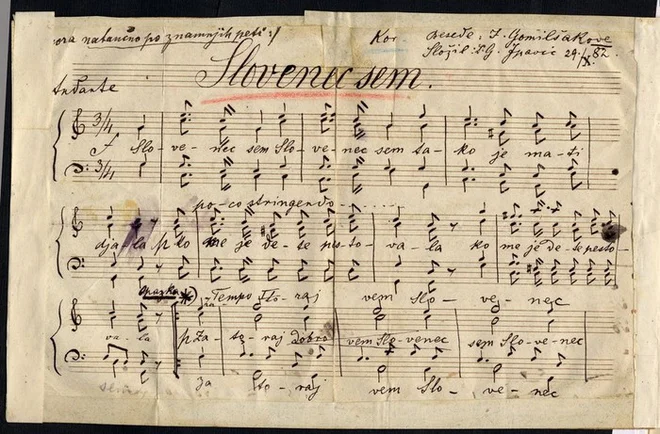 natančno po znamnjih peti :/
Kor. Besede: J. Gomilšakove
Složil: G. Ipavic 29./X. 82.
Slovenec sem.
Andante
3/4
f Slo-ve-nec sem Slo-ve-nec sem ta-ko je ma-ti
3/4
po-co stringendo
dja-la ko me je de-te pesto-va-la ko me je de-te pesto-
Tempo I to-raj vem Slo-ve-nec
va-la Za-to-raj dobro vem Slo-venec sem Slo-ve-nec
za to-raj vem Slo-ve-nec